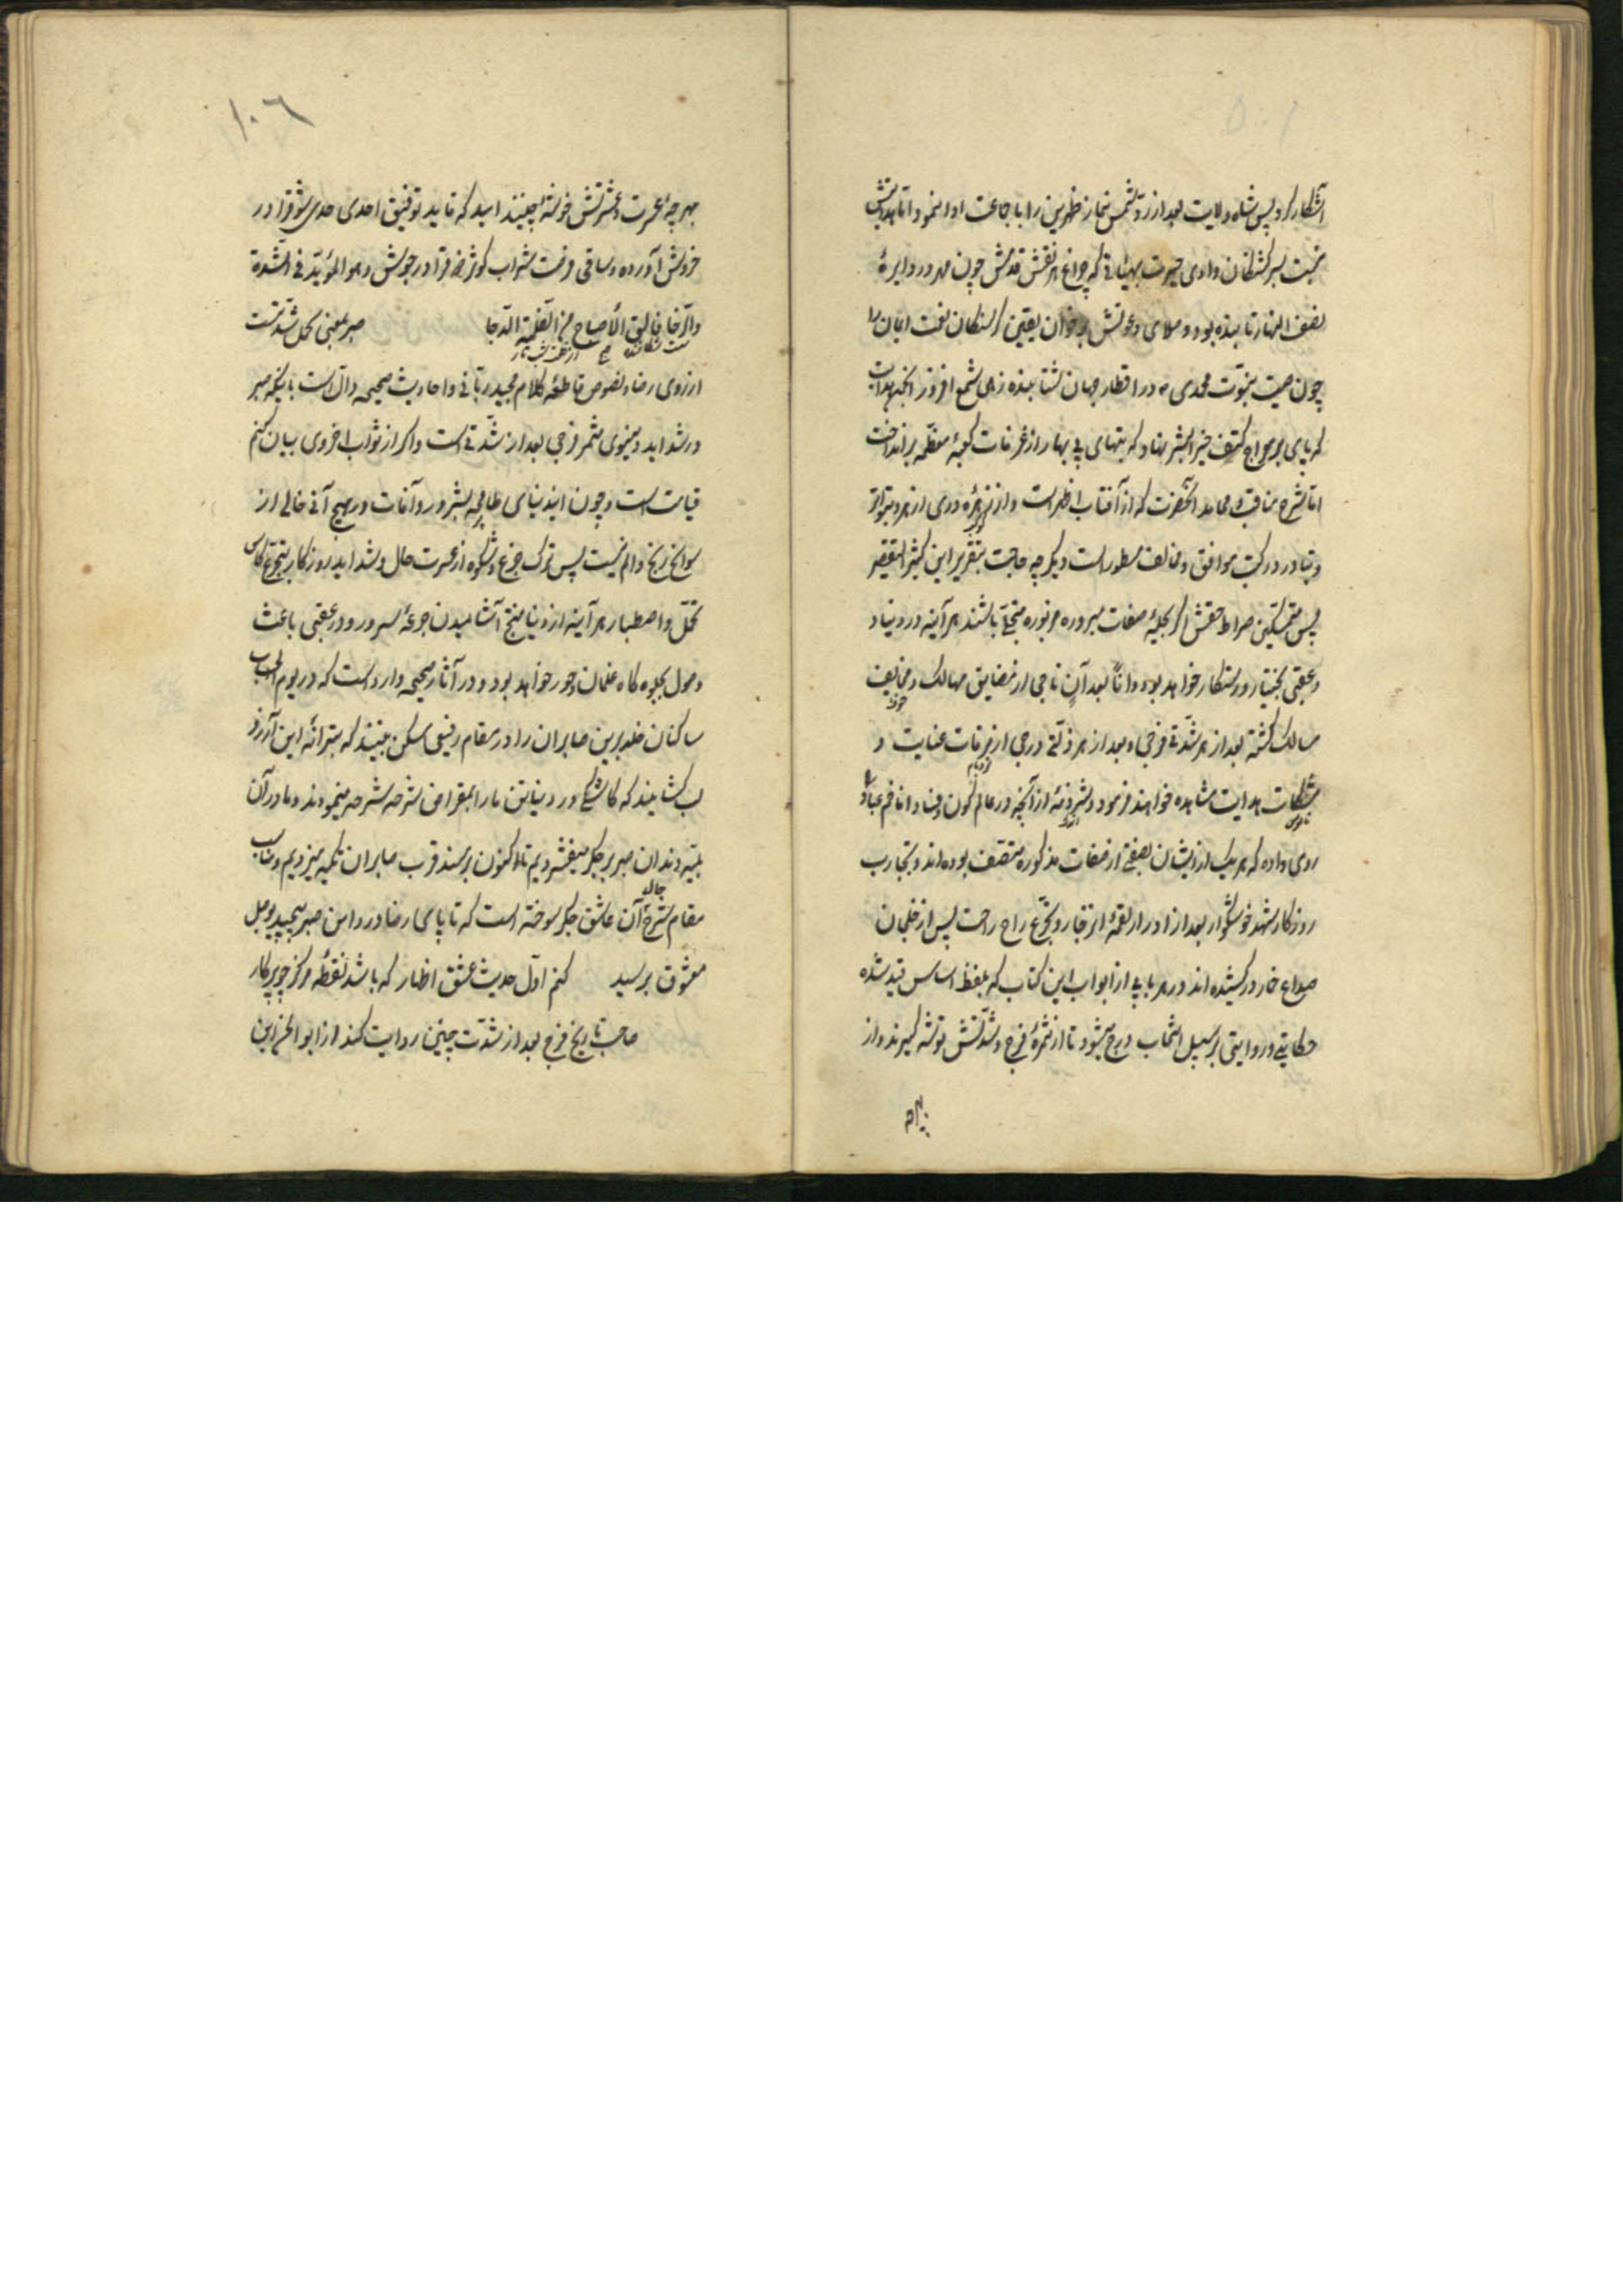 آشکار کرد پس شاه ولایت بعد از رد شمس نماز ظهرین را با جماعت ادا نمود اما هدایتش
نجبت بسرکشتکان وادی حیرت بمثابتی که چراغ هر نقش قدمش چون مهر در دایرهٔ
نصف النهار تابنده بود و صلای دعوتش بر خوان یقین کرسنکان نعمت ایمان را
چون صیت نبوت محمدی ص در اقطار جهان شتابنده زهی شمع افروز انجمن هدایت
که پای بر معراج کتف خیر البشر نهاد و که بتهای بی بها را از غرفات کعبهٔ معظمه برانداخت
اما شرح مناقب و محامد آنحضرت که از آفتاب اظهر است و از زهره دری ازهر و بتواتر
و تبادر در کتب موافق و مخالف مسطور است دیکر چه حاجت بتقریر این کثیر التقصیر
پس متمسکین صراط حقش اکر بحلیهٔ صفات مبروره مزبوره متحلی باشند هر آینه در دنیا و
و عقبی بختیار و رستکار خواهد بود و اناً بعد آنٍ ناجی از مضایق مهالک و مخایف
مسالک کشته بعد از هر شدتی فرجی و بعد از هر ذلتی درجی از غرفات عنایت و
مشکات هدایت مشاهده خواهند فرمود و شرذمهٔ از آنچه در عالم کون و فساد انا فم عباد را
روی داده که هر یک از ایشان بصفتی از صفات مذکوره متصف بوده اند و تجارب
روزکار شهد خوشکوار بعد از ادرار لقمهٔ انزجار و تجرع راح راحت پس از خلجان
صداع خمار در کشیده اند در هر بابی از ابواب این کتاب که بلفظ اساس قید شده
حکایتی و روایتی بر سبیل انتخاب درج میشود تا از ثمرهٔ فرج و شدتش توشه کیرند و از
بهرام
١٠٦
بهر چهٔ عسرت و عشرتش خوشهٔ چینند امید که تایید توفیق احدی حدی شوق را در
خروش آورده و ساقی وقت شراب کوثر مزه را در جوش و هو المؤید فی الشدة
والرخا فالق الأصباح من الظلمة الدجا صبر بمعنی تحمل شدتست
از روی رضا و نصوص قاطعهٔ کلام مجید ربانی و احادیث صحیحه دال است باینکه صبر
در شداید دنیوی مثمر فرجی بعد از شدتی است و اکر از ثواب اخروی بیان کنم
قیامت است و چون این دنیای ظالمه بشر و ر و آفات و بهیچ آنی خالی از
سوانح رنج و الم نیست پس ترک جزع و شکوه از عسرت حال و شداید روزکار بتجرع کاس
تحمل و اصطبار هر آینه از دنیا منتج آشامیدن جوعهٔ سرور و در عقبی باعث
وصول بجلوه کاه غلمان و حور خواهد بود و در آثار صحیحه وارد است که در یوم الحساب
ساکنان خلد برین صابران را در مقام رفیعی مسکن بینند که بترانهٔ این آرزو
لب کشایند که کاشکی در دنیا تن ما را بمقراض شرحه شرحه مینمودند و ما در آن
بلیّه دندان صبر بر جکر میفشردیم تا اکنون بر مسند قرب صابران تکیه میزدیم و مناسب
مقام شرح حال آن عاشق جکر سوخته است که تا پای رضا در دامن صبر نپیچید بوصل
معشوق نرسید کنم اول حدیث عشق اظهار که باشد نقطهٔ مرکز چو پرکار
صاحب تاریخ فرج بعد از شدت چنین روایت کند از ابو الحزابن